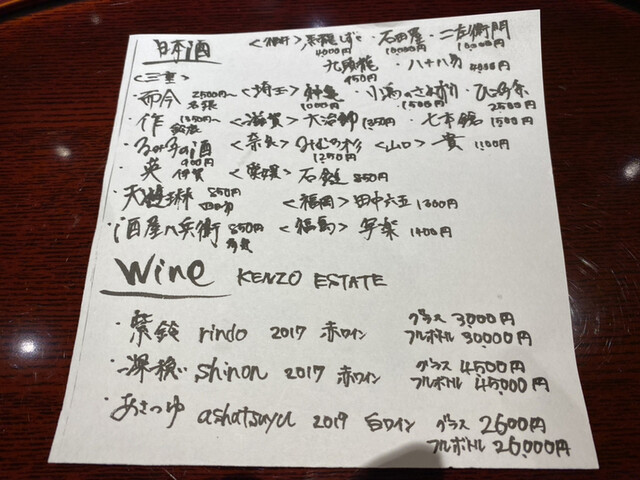 日本酒 <福井> 黒龍しずく 4000円 ・石田屋 10000円 ・二左衛門 10000円
九頭龍 950円 ・八十八号 4000円
<三重>
・而今 2500円〜 名張 <埼玉> 神亀 1000円 ・小鳥のさえずり 1500円 ・ひこ孫 2500円
・作 1350円〜 鈴鹿 <滋賀> 大治郎 1350円 ・七本鎗 1500円
・るみ子の酒 900円 <奈良> みむろ杉 1250円 <山口> 貴 1100円
・英 伊賀 <愛媛> 石鎚 850円
・天遊琳 850円 四日市 <福岡> 田中六五 1300円
・酒屋八兵衛 850円 多気 <福島> 写楽 1400円
Wine KENZO ESTATE
・紫鈴 rindo 2017 赤ワイン グラス 3,000円
フルボトル 30,000円
・深穏 shinon 2017 赤ワイン グラス 4500円
フルボトル 45,000円
・あさつゆ ashatsuyu 2019 白ワイン グラス 2600円
フルボトル 26,000円